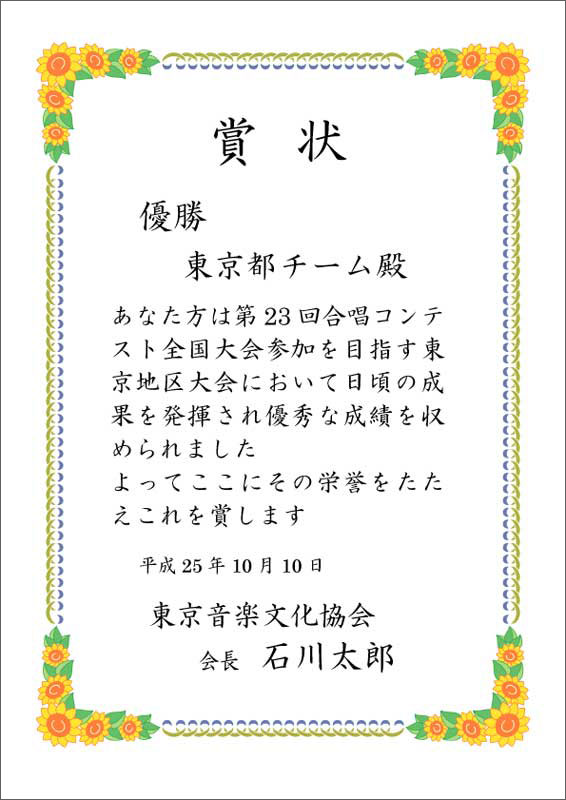 賞状
優勝
東京都チーム殿
あなた方は第23回合唱コンテ
スト全国大会参加を目指す東
京地区大会において日頃の成
果を発揮され優秀な成績を収
められました
よってここにその栄誉をたた
えこれを賞します
平成25年10月10日
東京音楽文化協会
会長 石川太郎